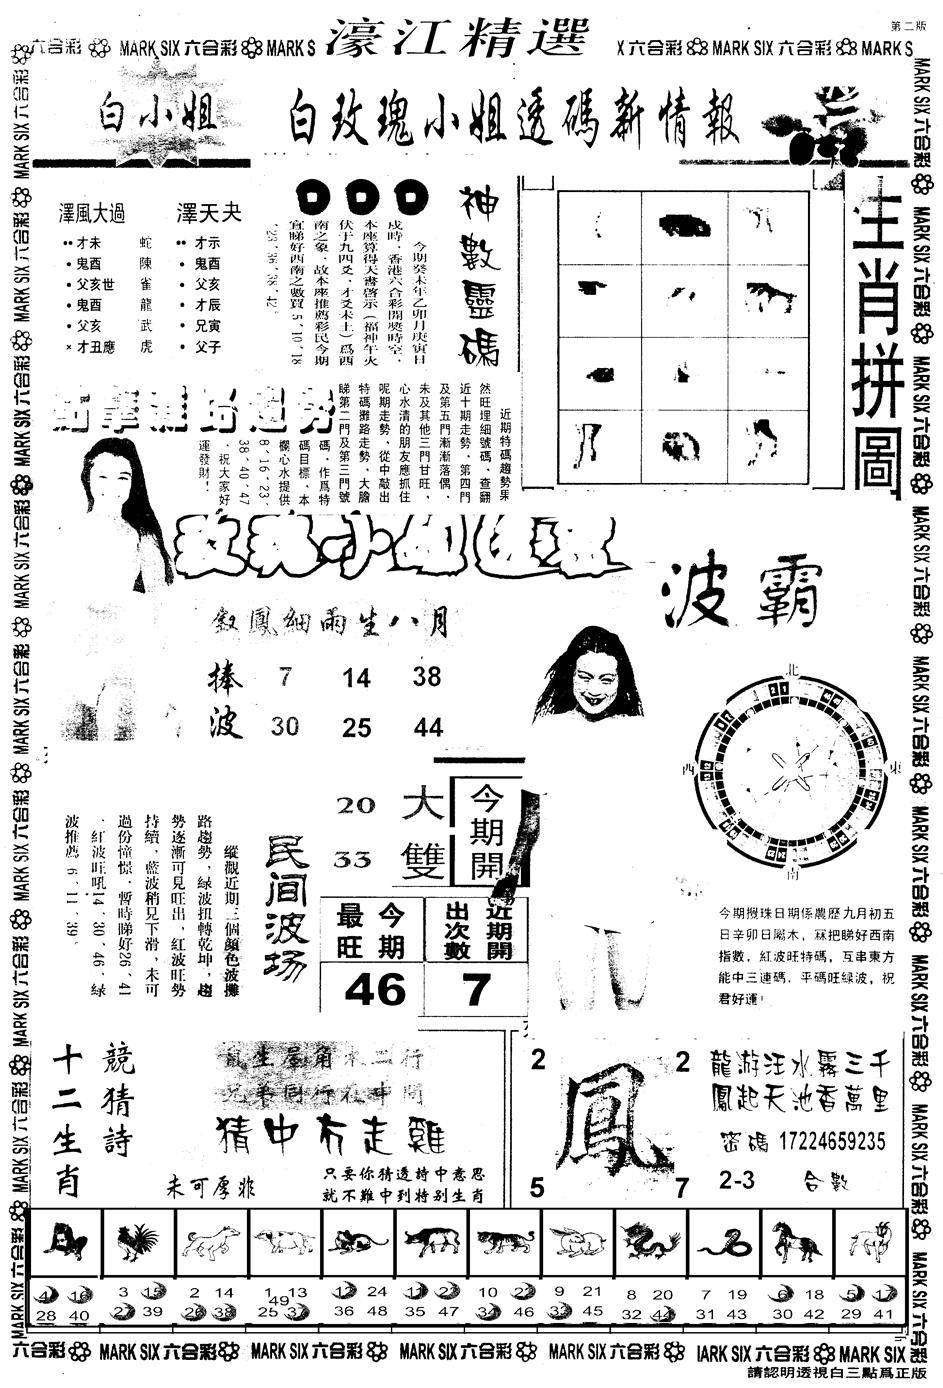 第二版
六合彩 MARK SIX 六合彩 MARK S
濠江精選
X 六合彩 MARK SIX 六合彩 MARK S
白小姐
白玫瑰小姐透碼新情報
澤風大過
澤天夬
•• 才未 蛇
• 鬼酉 陳
• 父亥世 雀
• 鬼酉 龍
• 父亥 武
× 才丑應 虎
•• 才示
• 鬼酉
• 父亥
• 才辰
• 兄寅
• 父子
神數靈碼
今期癸未年乙卯月庚寅日
戌時．香港六合彩開獎時空．
本座算得天書啓示（福神午火
伏于九四爻．才爻未土）爲西
南之象．故本座推薦彩民今期
宜睇好西南之數買5、10、18
、23、36、38、42。
生肖拼圖
近期特碼趨勢果
然旺埋細號碼．查翻
近十期走勢．第四門
及第五門漸漸落偶．
未及其他三門甘旺．
心水清的朋友應抓住
呢期走勢．從中敲出
特碼攤路走勢．大膽
睇第二門及第三門號
碼．作爲特
碼目標．本
欄心水提供
8、16、23、
38、40、47
．祝大家好
運發財！
波霸
鳳細雨生八月
捧波
7 14 38
30 25 44
北
西
東
南
20 大
33 雙
今期開
民间波场
縱觀近期三個顏色波攤
路趨勢．绿波扭轉乾坤．趨
勢逐漸可見旺出．紅波旺勢
持續．藍波稍見下滑．未可
過份憧憬．暫時睇好26、41
．紅波旺吼14、30、46．緑
波推薦6、11、39。
今期最旺
近期開出次數
46
7
今期攪珠日期係農歷九月初五
日辛卯日屬木，冧把睇好西南
指數，紅波旺特碼，互串東方
能中三連碼．平碼旺緑波，祝
君好運！
十二生肖
競猜詩
生屋角
同行在中間
猜中冇走雞
未可厚非
只要你猜透詩中意思
就不難中到特别生肖
2 2
鳳
5 7
龍游汪水霧三千
鳳起天池香萬里
密碼 17224659235
2-3 合數
4 16 28 40
3 15 27 39
2 14 26 38
1 13 49 25 37
12 24 36 48
11 23 35 47
10 22 34 46
9 21 33 45
8 20 32 44
7 19 31 43
6 18 30 42
5 17 29 41
六合彩 MARK SIX 六合彩 MARK SIX 六合彩 MARK SIX 六合彩 MARK SIX 六合彩 IARK SIX 六合彩 MARK SIX
請認明透視白三點爲正版